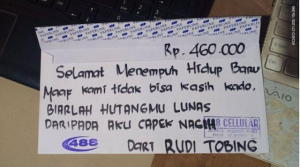 Rp. 460.000
Selamat Menempuh Hidup Baru
Maap kami tidak bisa kasih kado.
BIARLAH HUTANGMU LUNAS
DARIPADA AKU CAPEK NAGIH
CELLULAR
DARI RUDI TOBING